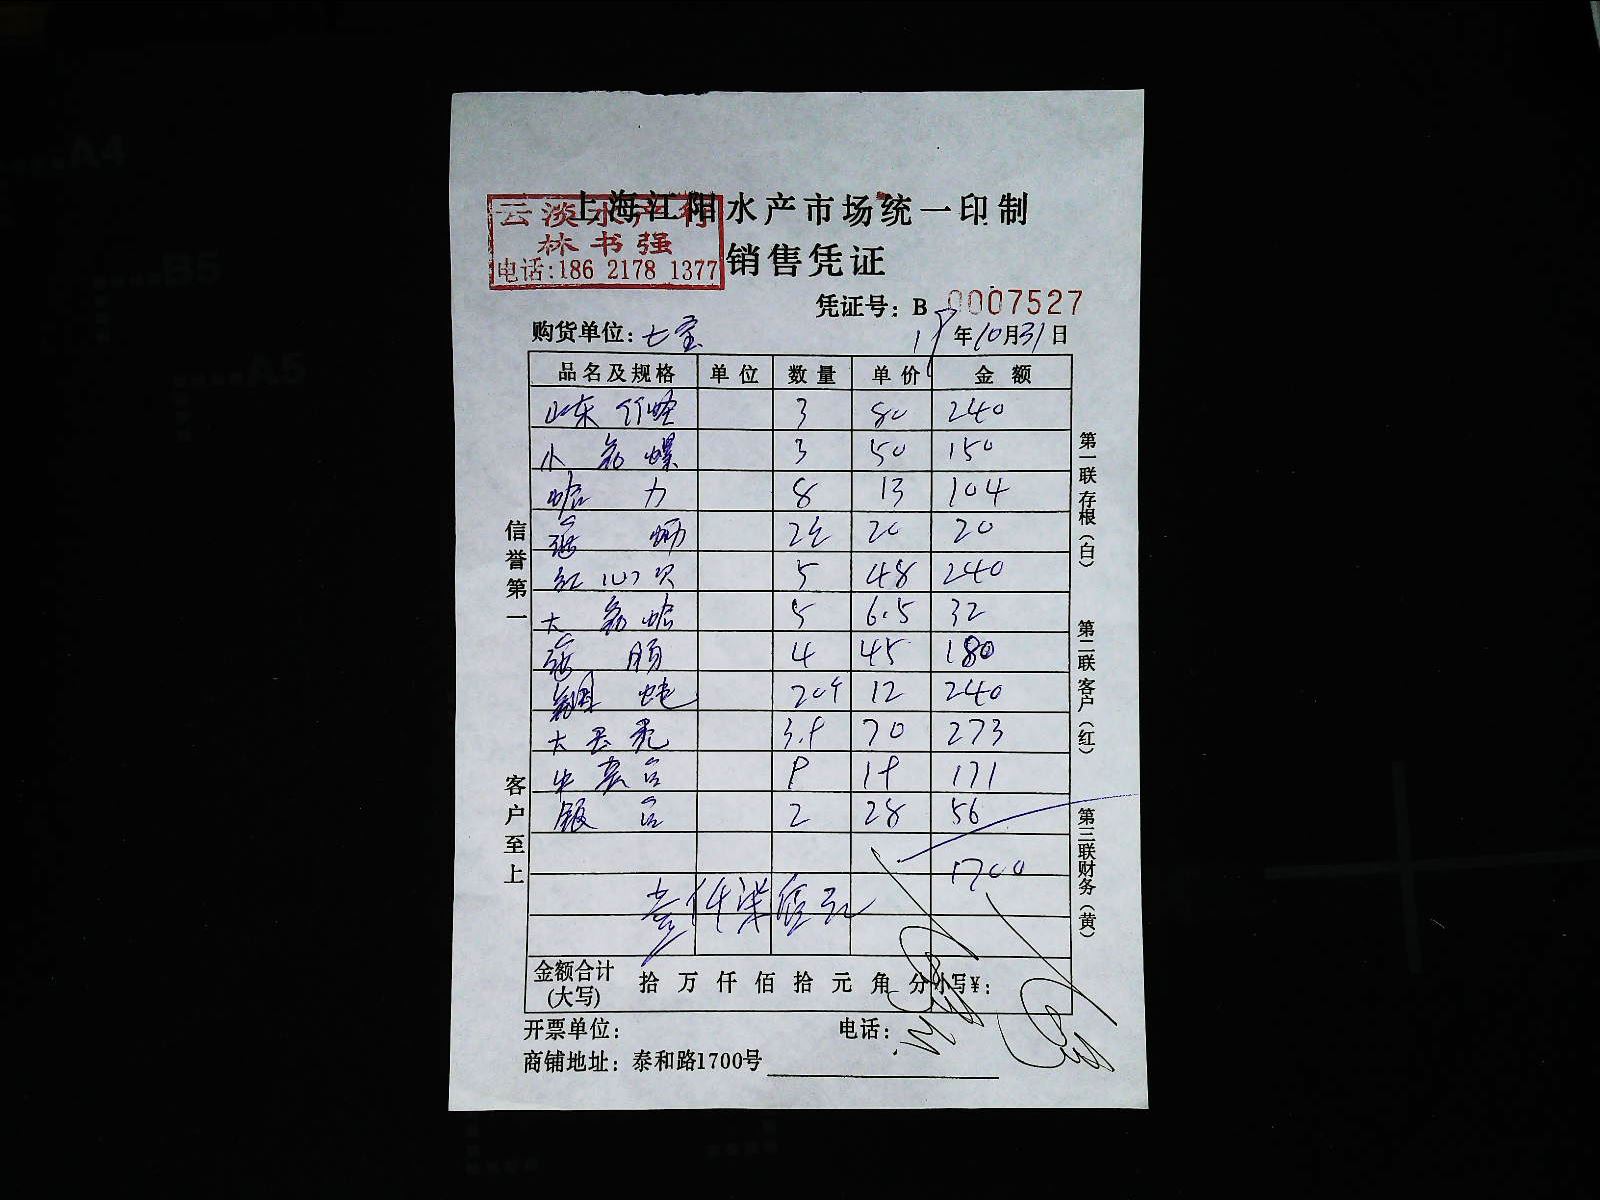 上海江阳水产市场统一印制
云淡水产行
林书强
电话:186 2178 1377
销售凭证
凭证号: B 0007527
购货单位: 七宝 19年10月31日
品名及规格 单位 数量 单价 金额
山东 竹蛏 3 80 240
小 螺 3 50 150
蛤 力 8 13 104
蛎 20 20
红 5 48 240
大 蛤 5 6.5 32
肠 4 45 180
鲍 20个 12 240
大 3.9 70 273
9 19 171
2 28 56
1700
壹仟柒佰元
金额合计(大写) 拾 万 仟 佰 拾 元 角 分 小写¥:
开票单位: 电话:
商铺地址: 泰和路1700号
信誉第一
客户至上
第一联 存根(白)
第二联 客户(红)
第三联 财务(黄)